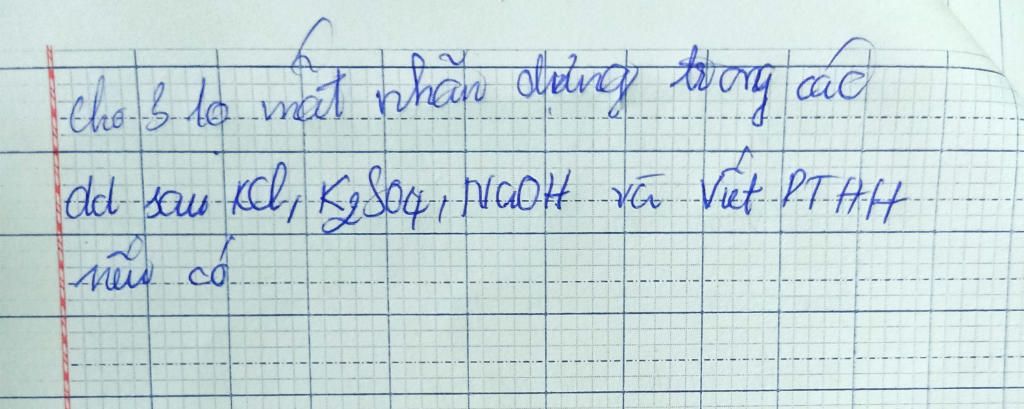 cho 3 lọ mất nhãn đựng trong các
dd sau KCl, K2SO4, NaOH và viết PTHH
nếu có